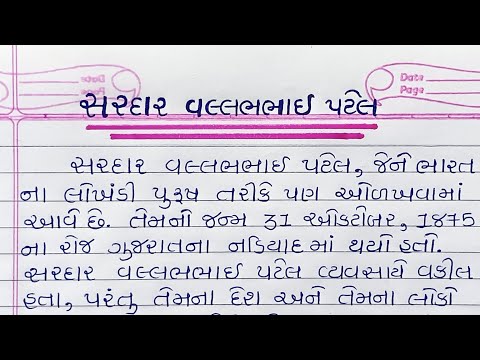 Date
Page
સરદાર વલ્લભભાઈ પટેલ
સરદાર વલ્લભભાઈ પટેલ, જેને ભારત
ના લોખંડી પુરૂષ તરીકે પણ ઓળખવામાં
આવે છે. તેમનો જન્મ 31 ઓક્ટોબર, 1875
ના રોજ ગુજરાતના નડિયાદ માં થયો હતો.
સરદાર વલ્લભભાઈ પટેલ વ્યવસાયે વકીલ
હતા, પરંતુ તેમના દેશ અને તેમના લોકો